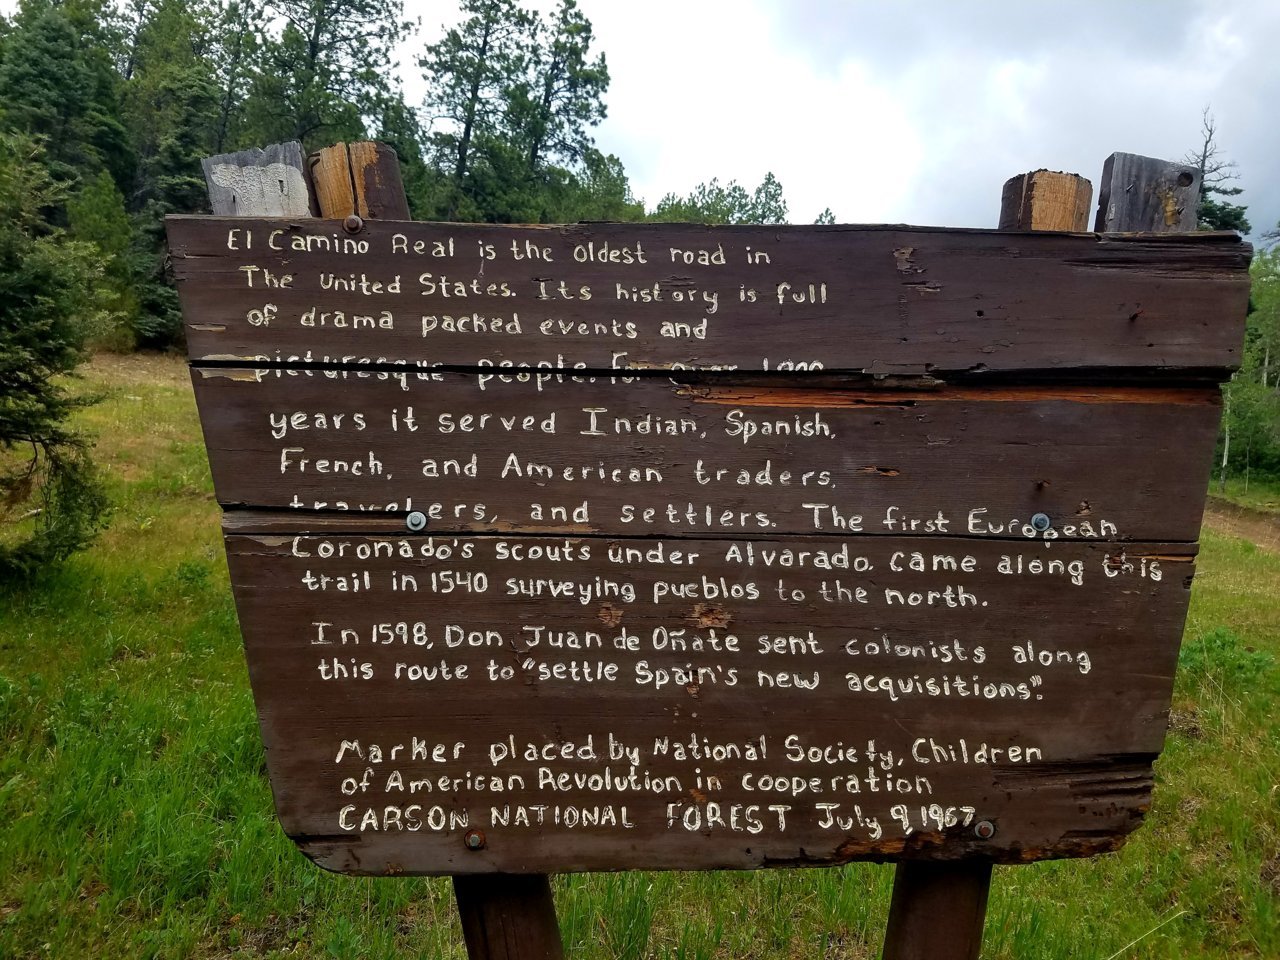 El Camino Real is the oldest road in
The United States. Its history is full
of drama packed events and
picturesque people. For over
years it served Indian, Spanish,
French, and American traders,
travelers, and settlers. The first European
Coronado's scouts under Alvarado, came along this
trail in 1540 surveying pueblos to the north.
In 1598, Don Juan de Oñate sent colonists along
this route to "settle Spain's new acquisitions".
Marker placed by National Society, Children
of American Revolution in cooperation
CARSON NATIONAL FOREST July 9, 1967